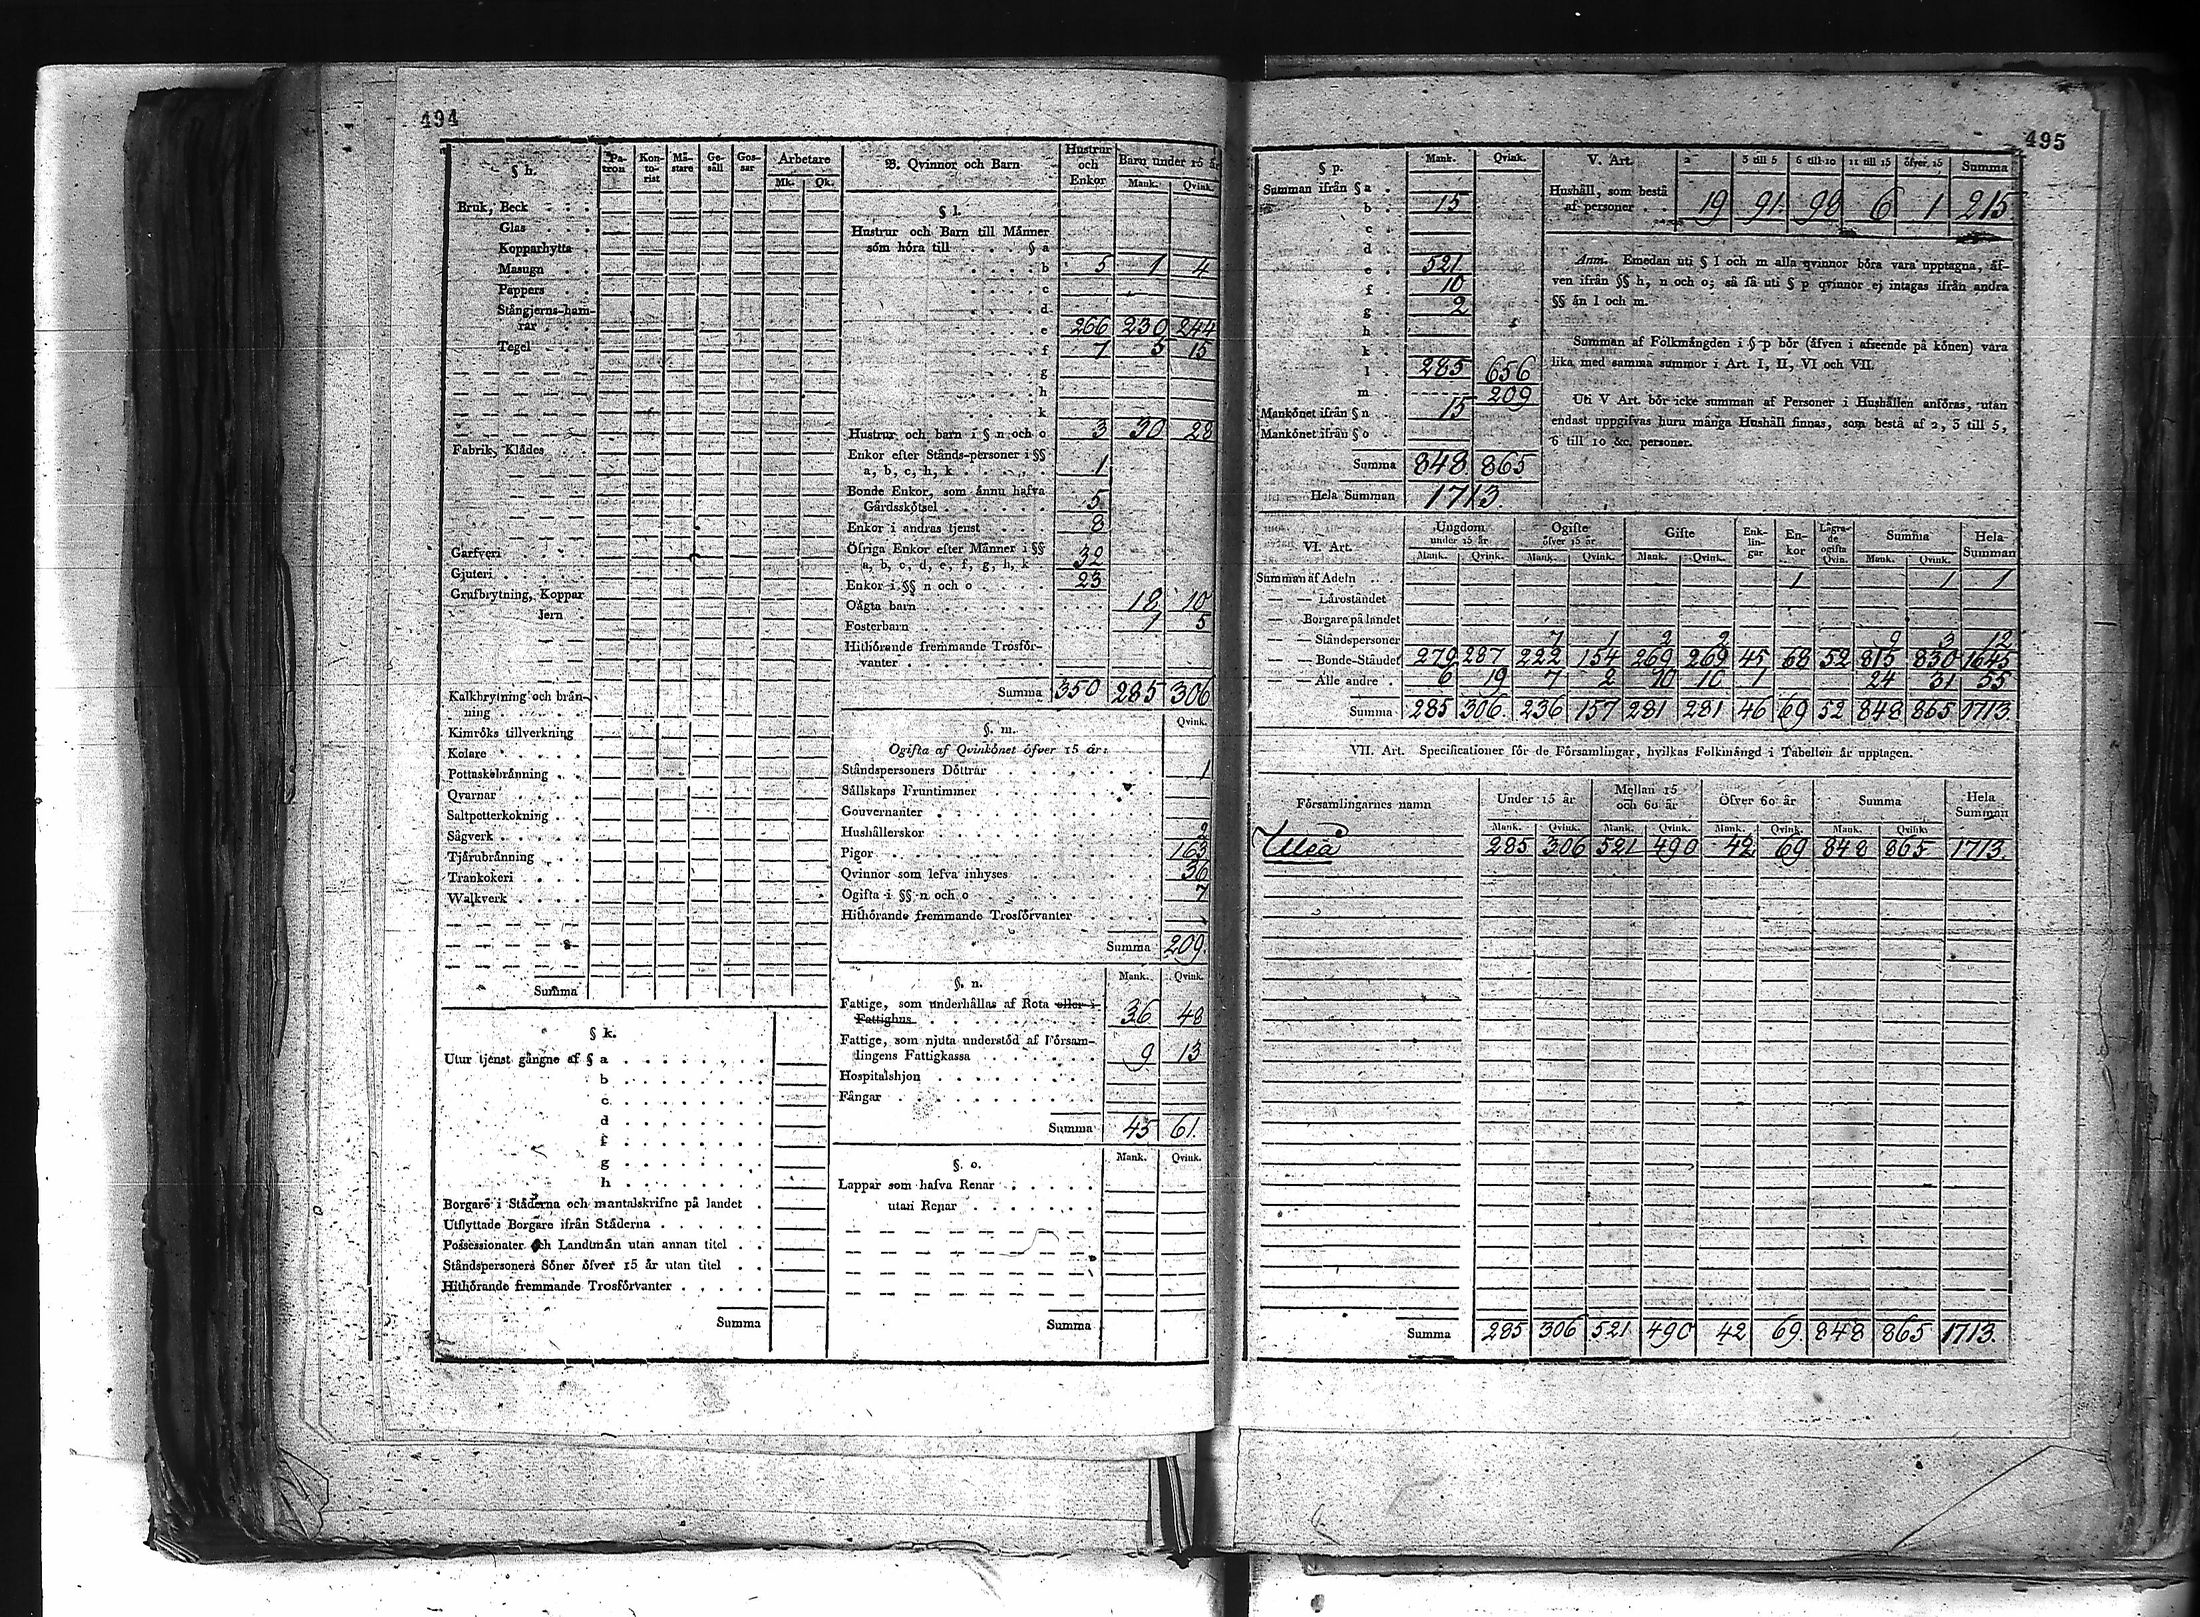 494
§ h.
Patron Kontorist Mästare Gesäll Gossar Arbetare
Mk. Qk.
Bruk, Beck
Glas
Kopparhytta
Masugn
Pappers
Stångjerns-hamrar
Tegel
Fabrik, Klädes
Garfveri
Gjuteri
Grufbrytning, Koppar
Jern
Kalkbrytning och bränning
Kimröks tillverkning
Kolare
Pottaskebränning
Qvarnar
Saltpetterkokning
Sågverk
Tjärubränning
Trankokeri
Walkverk
Summa
§ k.
Utur tjenst gångne af § a
b
c
d
f
g
h
Borgare i Städerna och mantalskrifne på landet
Utflyttade Borgare ifrån Städerna
Possessionater och Landtmän utan annan titel
Ståndspersoners Söner öfver 15 år utan titel
Hithörande fremmande Trosförvanter
Summa
B. Qvinnor och Barn
Hustrur och Enkor
Barn under 15 år
Mank. Qvink.
§ l.
Hustrur och Barn till Männer
som höra till § a
b 5 1 4
c
d
e 266 230 244
f 7 5 15
g
h
k
Hustrur och barn i § n och o 3 30 28
Enkor efter Stånds-personer i §§
a, b, c, h, k 1
Bonde Enkor, som ännu hafva
Gårdsskötsel 5
Enkor i andras tjenst 8
Öfriga Enkor efter Männer i §§
a, b, c, d, e, f, g, h, k 32
Enkor i §§ n och o 23
Oägta barn 18 10
Fosterbarn 1 5
Hithörande fremmande Trosförvanter
Summa 350 285 306
§. m.
Qvink.
Ogifta af Qvinkönet öfver 15 år:
Ståndspersoners Döttrar 1
Sällskaps Fruntimmer
Gouvernanter
Hushållerskor 2
Pigor 163
Qvinnor som lefva inhyses 36
Ogifta i §§ n och o 7
Hithörande fremmande Trosförvanter
Summa 209.
§. n.
Mank. Qvink.
Fattige, som underhållas af Rota eller i
Fattighus 36 48
Fattige, som njuta understöd af Församlingens Fattigkassa 9 13
Hospitalshjon
Fångar
Summa 45 61.
§. o.
Mank. Qvink.
Lappar som hafva Renar
utan Renar
Summa
495
§ p.
Mank. Qvink.
Summan ifrån § a
b 15
c
d
e 521
f 10
g 2
h
k
l 285 656
m 209
Mankönet ifrån § n 15
Mankönet ifrån § o
Summa 848 865
Hela Summan 1713.
V. Art. 2 3 till 5 6 till 10 11 till 15 öfver 15 Summa
Hushåll, som bestå
af personer 19 91 98 6 1 215
Anm. Emedan uti § l och m alla qvinnor böra vara upptagna, äfven ifrån §§ h, n och o; så få uti § p qvinnor ej intagas ifrån andra
§§ än l och m.
Summan af Folkmängden i § p bör (äfven i afseende på könen) vara
lika med samma summor i Art. I, II, VI och VII.
Uti V Art. bör icke summan af Personer i Hushållen anföras, utan
endast uppgifvas huru många Hushåll finnas, som bestå af 2, 3 till 5,
6 till 10 &c. personer.
VI. Art.
Ungdom under 15 år Ogifte öfver 15 år Gifte Enklingar Enkor Lägrade ogifta Qvin. Summa Hela Summan
Mank. Qvink. Mank. Qvink. Mank. Qvink. Mank. Qvink.
Summan af Adeln 1 1 1
— — Läroståndet
— — Borgare på landet
— — Ståndspersoner 7 1 2 2 9 3 12
— — Bonde-Ståndet 279 287 222 154 269 269 45 68 52 815 830 1645
— — Alle andre 6 19 7 2 10 10 1 24 31 55
Summa 285 306. 236 157 281 281 46 69 52 848 865 1713.
VII. Art. Specificationer för de Församlingar, hvilkas Folkmängd i Tabellen är upptagen.
Församlingarnes namn Under 15 år Mellan 15 och 60 år Öfver 60 år Summa Hela Summan
Mank. Qvink. Mank. Qvink. Mank. Qvink. Mank. Qvink.
Uleå 285 306 521 490 42 69 848 865 1713.
Summa 285 306 521 490 42 69. 848 865 1713.